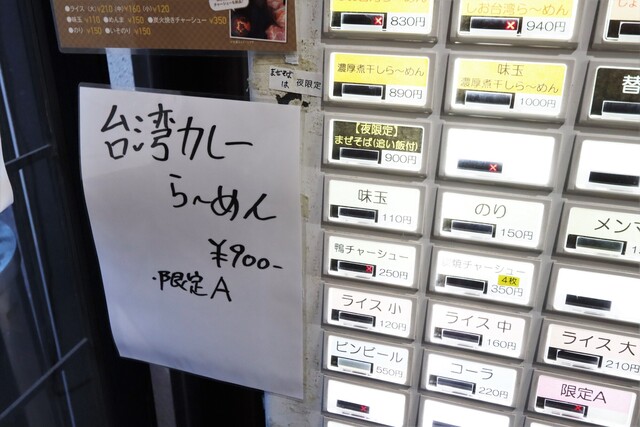 ●ライス (大)¥210 (中)¥160 (小)¥120
●味玉 ¥110 ●めんま ¥150 ●炭火焼きチャーシュー ¥350
●のり ¥150 ●いそのり ¥150
まぜそば
は 夜限定
台湾カレー
ら〜めん
¥900-
・限定A
830円
しお台湾ら〜めん
940円
濃厚煮干しら〜めん
890円
味玉
濃厚煮干しら〜めん
1000円
替
【夜限定】
まぜそば(追い飯付)
900円
味玉
110円
のり
150円
メンマ
鴨チャーシュー
250円
焼チャーシュー
4枚
350円
ライス 小
120円
ライス 中
160円
ライス 大
210円
ビンビール
550円
コーラ
220円
限定A